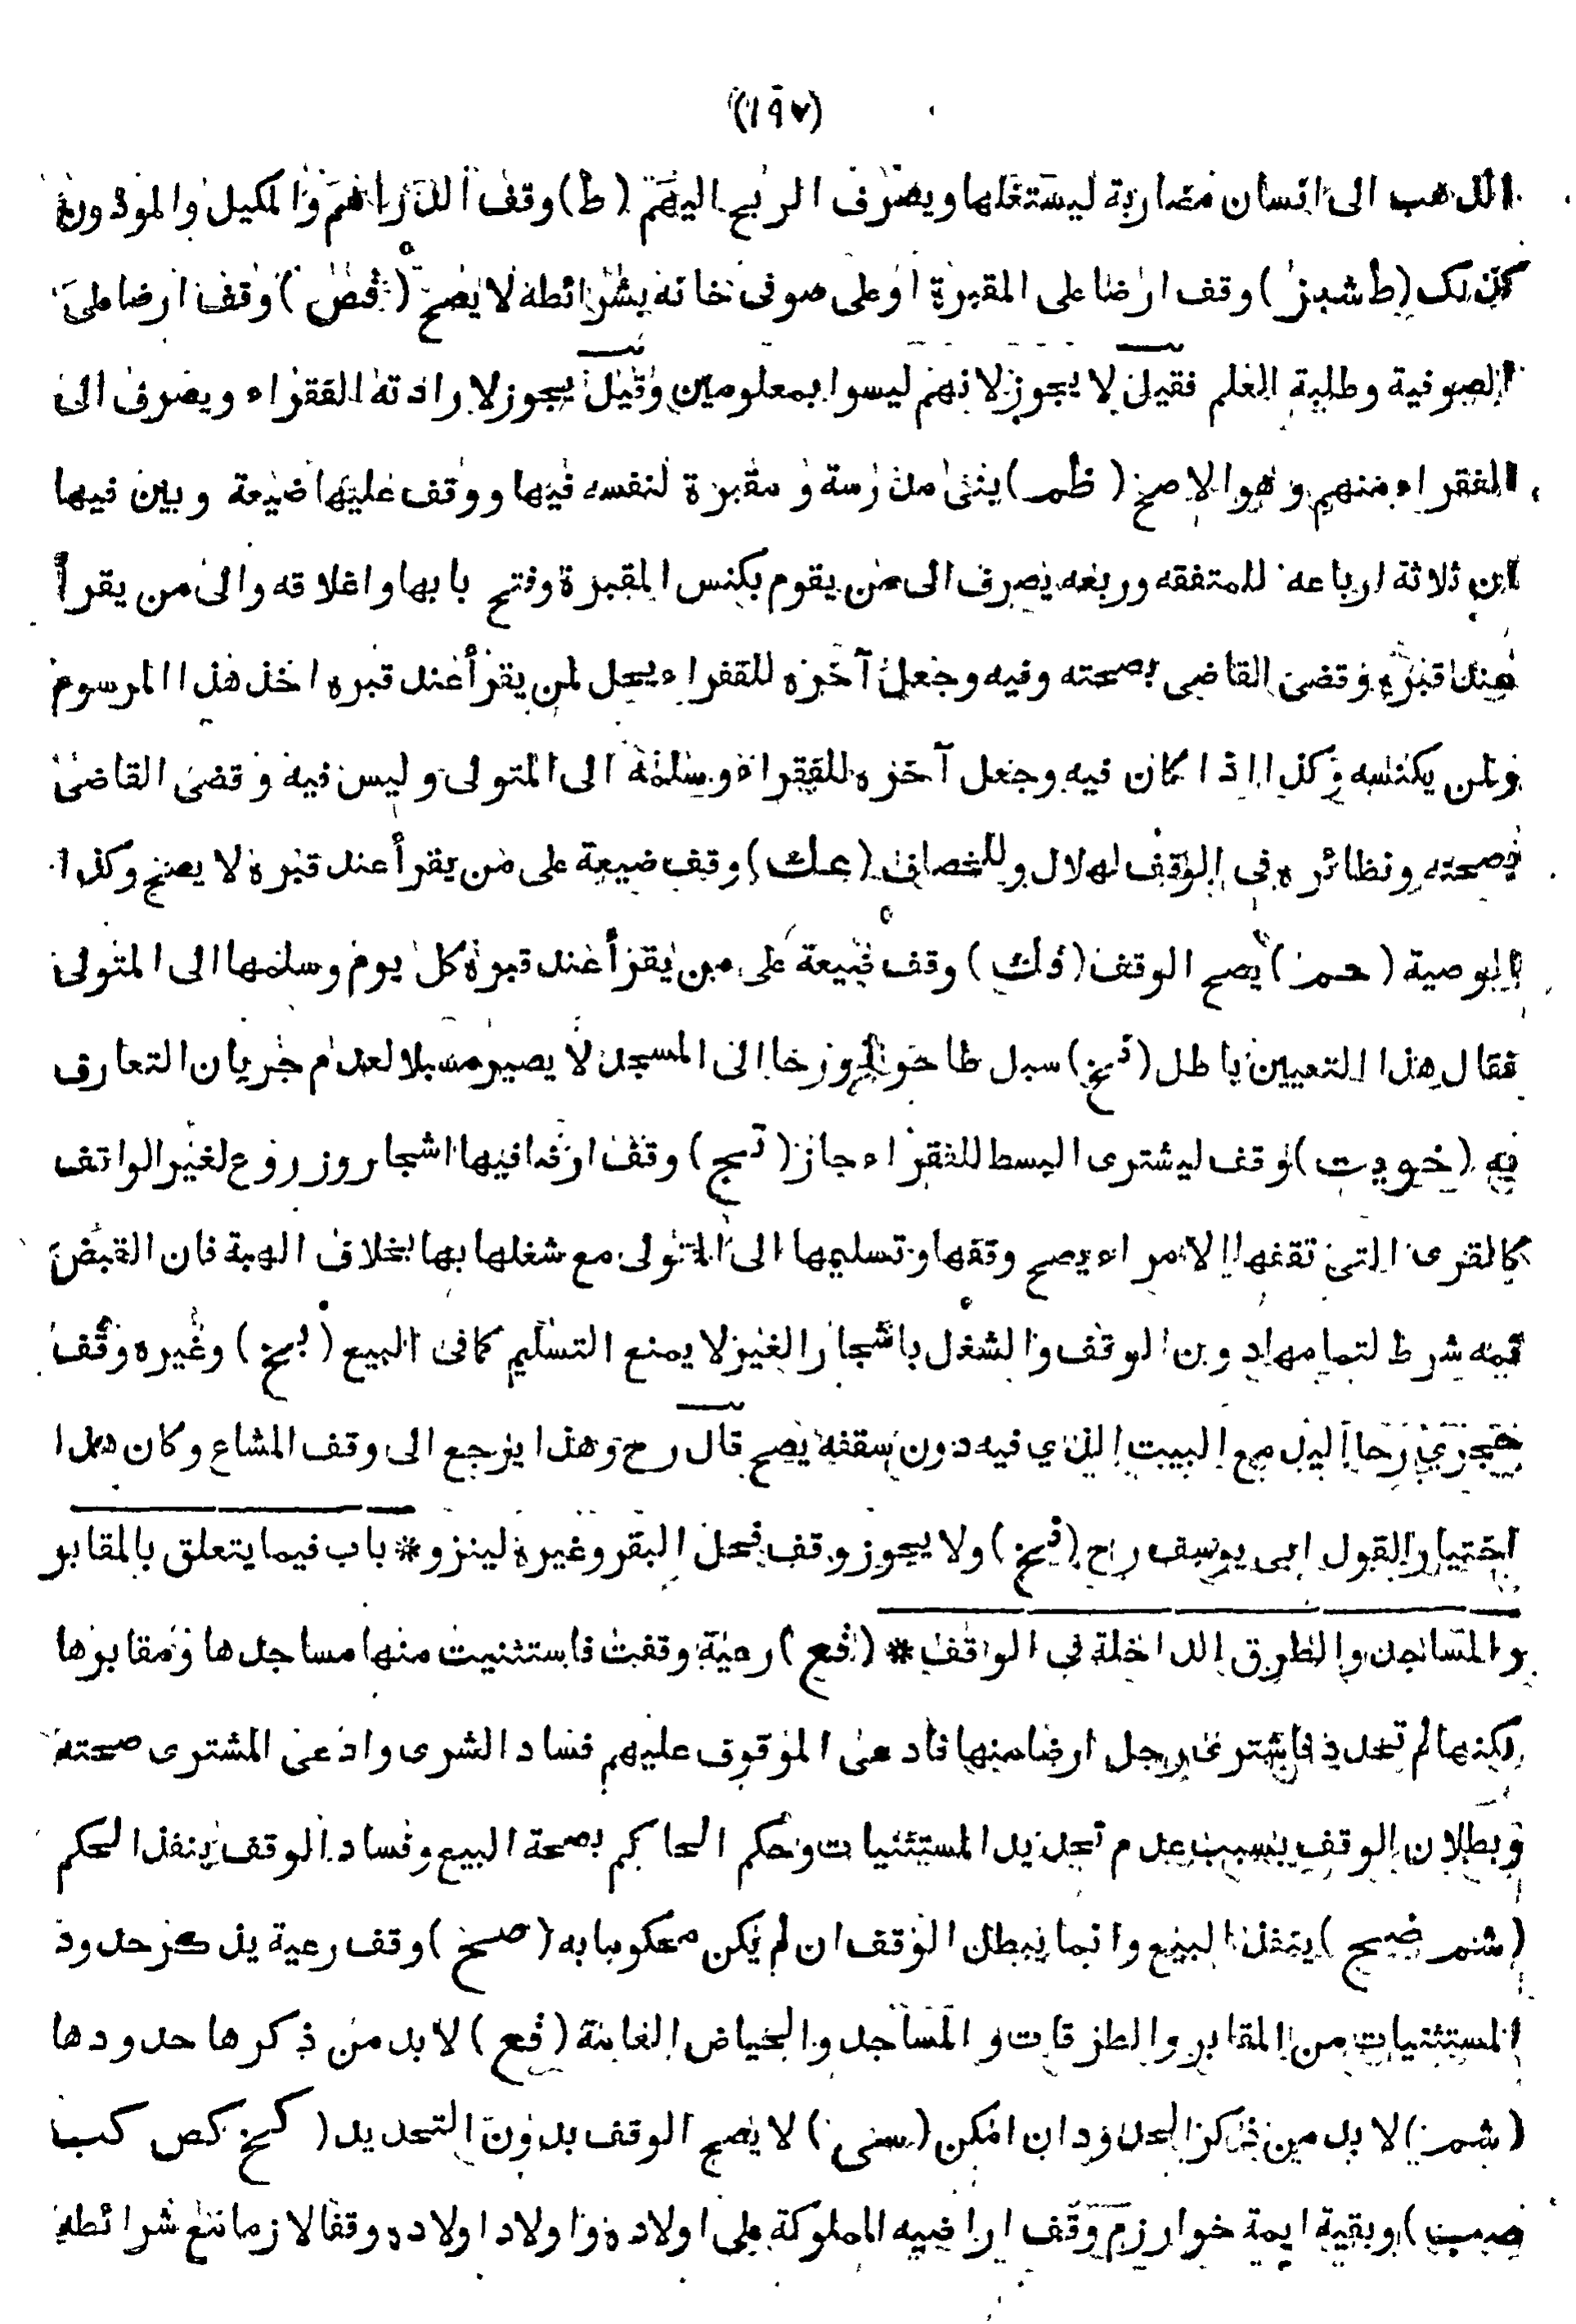 (١٩٧)
الذهب الى انسان مضاربة ليستغلها ويصرف الربح اليهم (ط) وقف الدراهم والمكيل والموزون
كذلك (ط شبز) وقف ارضا على المقبرة او على صوفى خانه بشرائطه لا يصح (فص) وقف ارضا على
الصوفية وطلبة العلم فقيل لا يجوز لانهم ليسوا بمعلومين وقيل يجوز لارادته الفقراء ويصرف الى
الفقراء منهم وهو الاصح (ظم) بنى مدرسة ومقبرة لنفسه فيها ووقف عليها ضيعة وبين فيها
ان ثلاثة ارباعه للمتفقه وربعه يصرف الى من يقوم بكنس المقبرة وفتح بابها واغلاقه والى من يقرأ
عند قبره وقضى القاضى بصحته وفيه وجعل آخره للفقراء يحل لمن يقرأ عند قبره اخذ هذا المرسوم
ولمن يكنسه وكذا اذا كان فيه وجعل آخره للفقراء وسلمه الى المتولى وليس فيه وقضى القاضى
بصحته ونظائره فى الوقف لهلال وللخصاف (عك) وقف ضيعة على من يقرأ عند قبره لا يصح وكذا
الوصية (حم) يصح الوقف (فك) وقف ضيعة على من يقرأ عند قبره كل يوم وسلمها الى المتولى
فقال هذا التعيين باطل (فخ) سبل طاحونة ورحا الى المسجد لا يصير مسبلا لعدم جريان التعارف
فيه (خويت) وقف ليشترى البسط للفقراء جاز (بج) وقف ارضا فيها اشجار وزروع لغير الواقف
كالقرى التى تقفها الامراء يصح وقفها وتسليمها الى المتولى مع شغلها بها بخلاف الهبة فان القبض
ثمه شرط لتمامها دون الوقف والشغل باشجار الغير لا يمنع التسليم كما فى البيع (بخ) وغيره وقف
حجرى رحا اليد مع البيت الذى فيه دون سقفه يصح قال رح وهذا يرجع الى وقف المشاع وكان هذا
اختيارا لقول ابى يوسف رح (فخ) ولا يجوز وقف فحل البقر وغيره لينزو * باب فيما يتعلق بالمقابر
والمساجد والطرق الداخلة فى الواقف * (فع) رعية وقفت فاستثنيت منها مساجدها ومقابرها
لكنها لم تحدد فاشترى رجل ارضا منها فادعى الموقوف عليهم فساد الشرى وادعى المشترى صحته
وبطلان الوقف بسبب عدم تحديد المستثنيات وحكم الحاكم بصحة البيع وفساد الوقف ينفذ الحكم
(شم صبح) ينفذ البيع وانما يبطل الوقف ان لم يكن محكوما به (صخ) وقف رعية يذكر حدود
المستثنيات من المقابر والطرقات والمساجد والحياض العامة (فع) لا بد من ذكرها حدودها
(شم) لا بد من ذكر الحدود ان امكن (سى) لا يصح الوقف بدون التحديد (كخ كص كب
صب) وبقية ايمة خوارزم وقف اراضيه المملوكة على اولاده واولاد اولاده وقفا لازما مع شرائطه